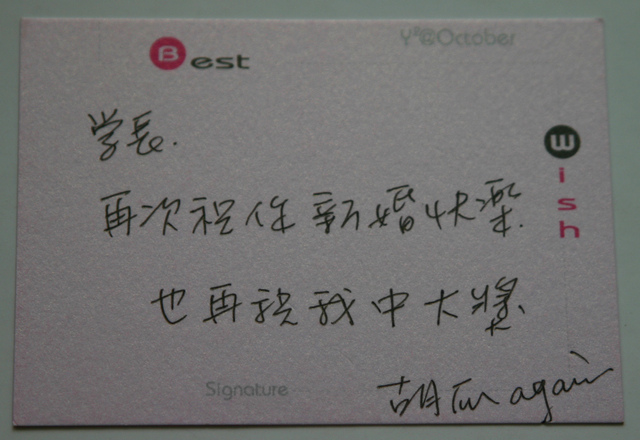 Best
Y²@October
Wish
学長.
再次祝你新婚快樂.
也再祝我中大獎
Signature
胡瓜 again